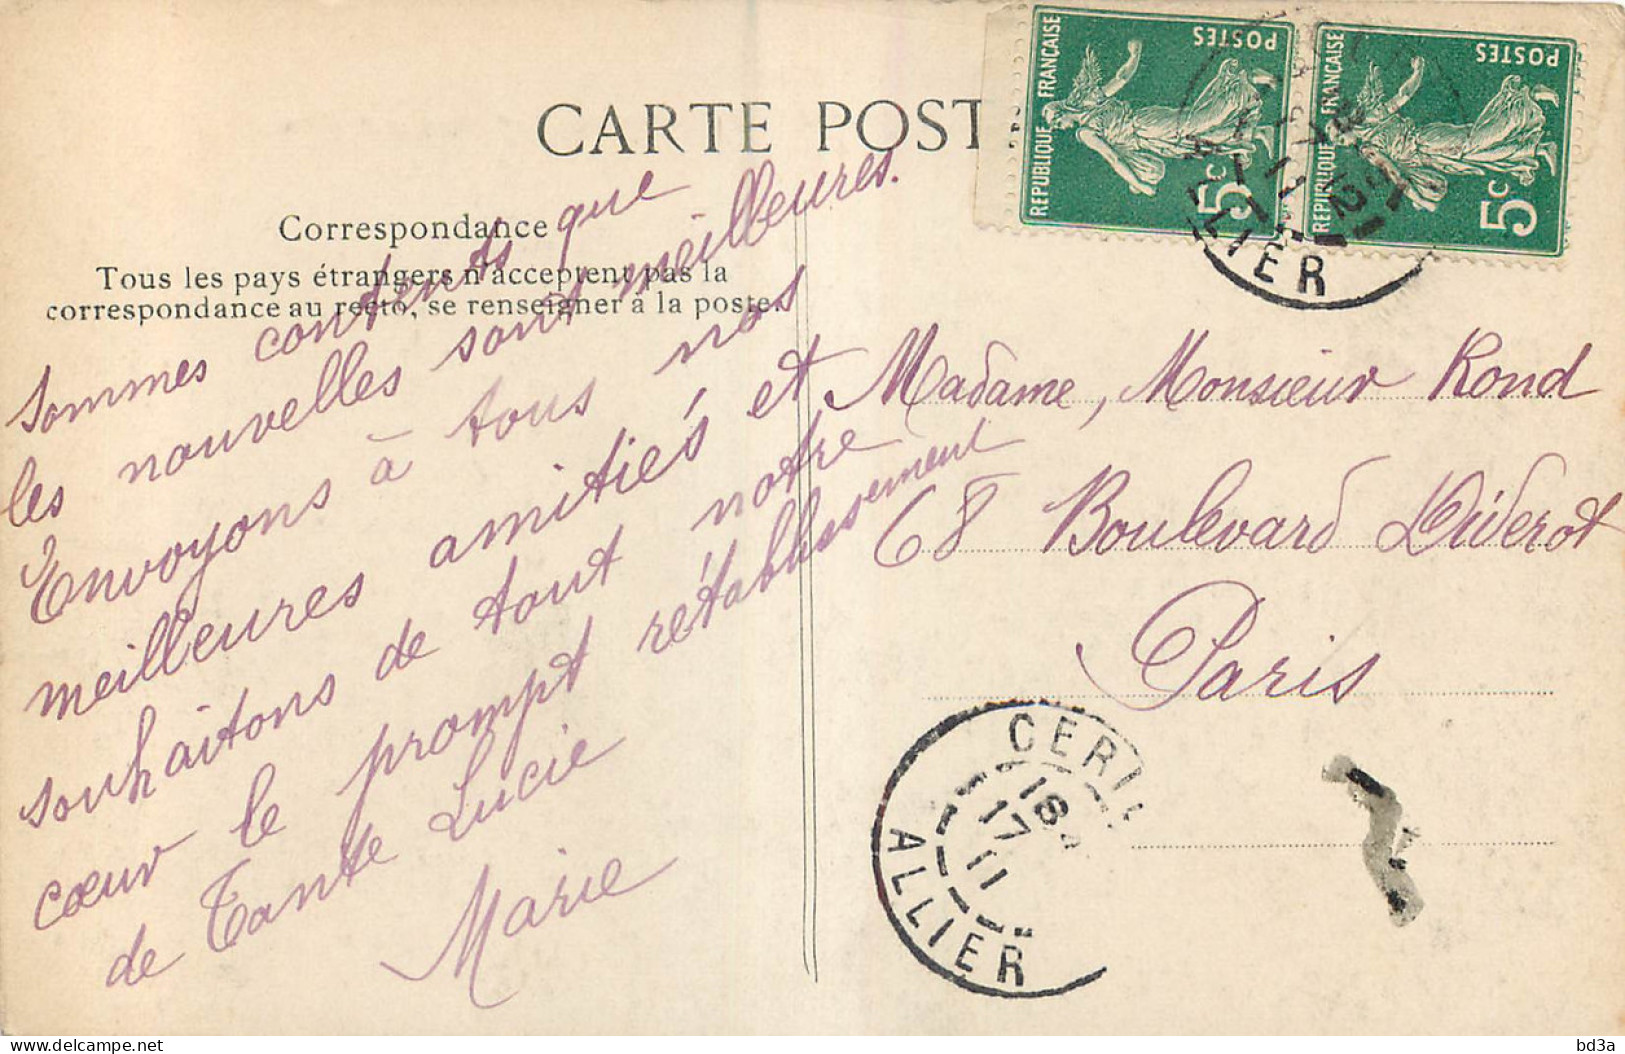 CARTE POST
Correspondance
Tous les pays étrangers n'acceptent pas la
correspondance au recto, se renseigner à la poste.
sommes contents que
les nouvelles sont meilleures.
Envoyons à tous nos
meilleures amitiés et
souhaitons de tout notre
cœur le prompt rétablissement
de Tante Lucie
Marie
REPUBLIQUE FRANÇAISE
POSTES
5c
REPUBLIQUE FRANÇAISE
POSTES
5c
ALLIER
Madame, Monsieur Rond
68 Boulevard Diderot
Paris
CERI
18
17
11
ALLIER
bd3a
delcampe.net